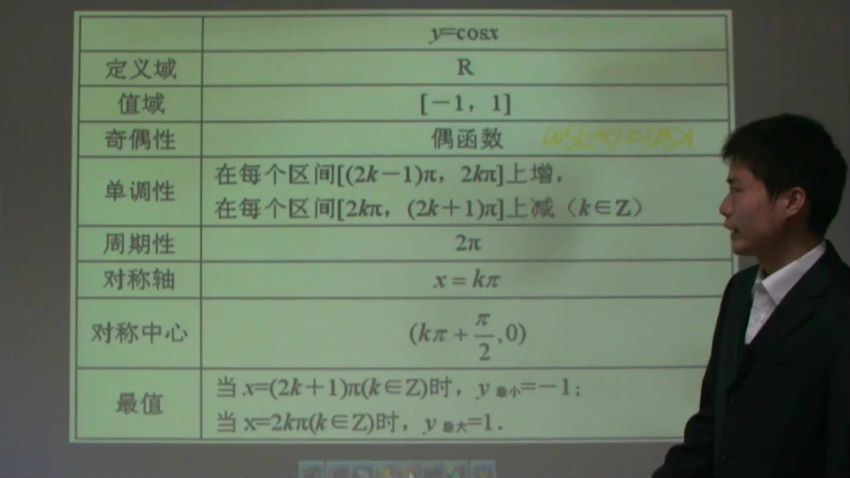 y=cosx
定义域 R
值域 [－1，1]
奇偶性 偶函数 cos(-x)=cosx
单调性 在每个区间[(2k－1)π，2kπ]上增，
在每个区间[2kπ，(2k＋1)π]上减（k∈Z）
周期性 2π
对称轴 x = kπ
对称中心 (kπ + π/2 ,0)
最值 当 x=(2k＋1)π(k∈Z)时，y 最小=－1；
当 x=2kπ(k∈Z)时，y 最大=1.